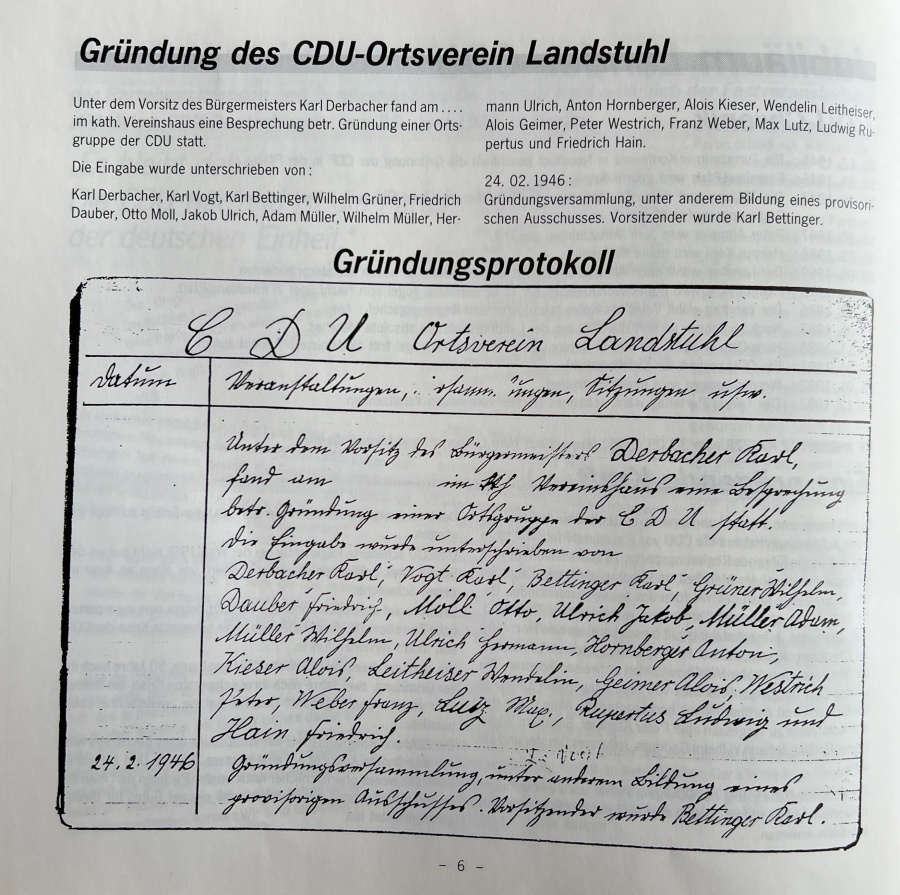 Gründung des CDU-Ortsverein Landstuhl
Unter dem Vorsitz des Bürgermeisters Karl Derbacher fand am ....
im kath. Vereinshaus eine Besprechung betr. Gründung einer Orts-
gruppe der CDU statt.
Die Eingabe wurde unterschrieben von:
Karl Derbacher, Karl Vogt, Karl Bettinger, Wilhelm Grüner, Friedrich
Dauber, Otto Moll, Jakob Ulrich, Adam Müller, Wilhelm Müller, Her-
mann Ulrich, Anton Hornberger, Alois Kieser, Wendelin Leitheiser,
Alois Geimer, Peter Westrich, Franz Weber, Max Lutz, Ludwig Ru-
pertus und Friedrich Hain.
24. 02. 1946:
Gründungsversammlung, unter anderem Bildung eines provisori-
schen Ausschusses. Vorsitzender wurde Karl Bettinger.
Gründungsprotokoll
C D U Ortsverein Landstuhl
Datum Veranstaltungen, Sitzungen usw.
Unter dem Vorsitz des Bürgermeisters Derbacher Karl,
fand am im kth Vereinshaus eine Besprechung
betr. Gründung einer Ortsgruppe der C D U statt.
Die Eingabe wurde unterschrieben von
Derbacher Karl, Vogt Karl, Bettinger Karl, Grüner Wilhelm,
Dauber Friedrich, Moll Otto, Ulrich Jakob, Müller Adam,
Müller Wilhelm, Ulrich Hermann, Hornberger Anton,
Kieser Alois, Leitheiser Wendelin, Geimer Alois, Westrich
Peter, Weber Franz, Lutz Max., Rupertus Ludwig und
Hain Friedrich.
24. 2. 1946 Gründungsversammlung, unter anderem Bildung eines
provisorigen Ausschusses. Vorsitzender wurde Bettinger Karl.
- 6 -